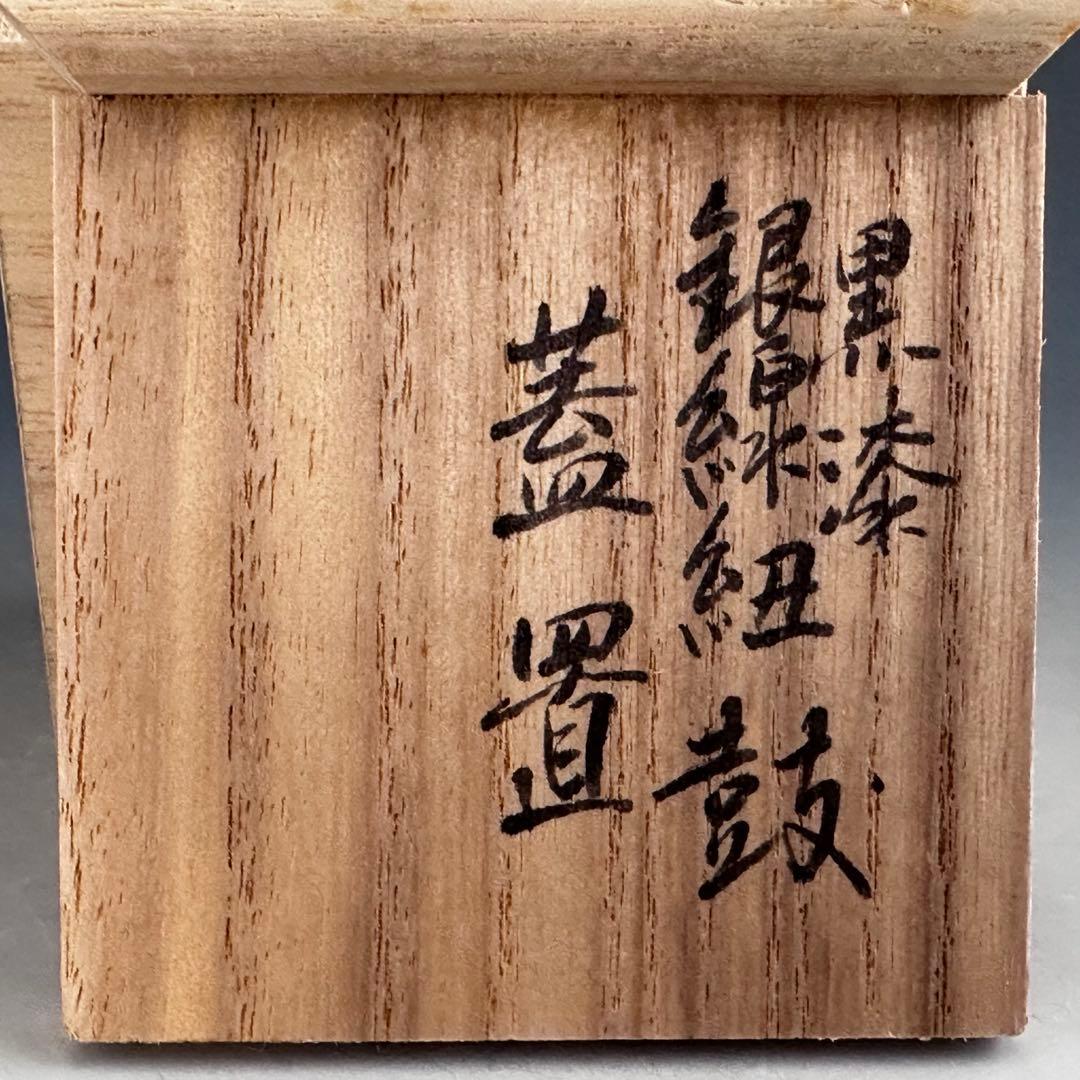 黒漆
銀線紐鼓
蓋置